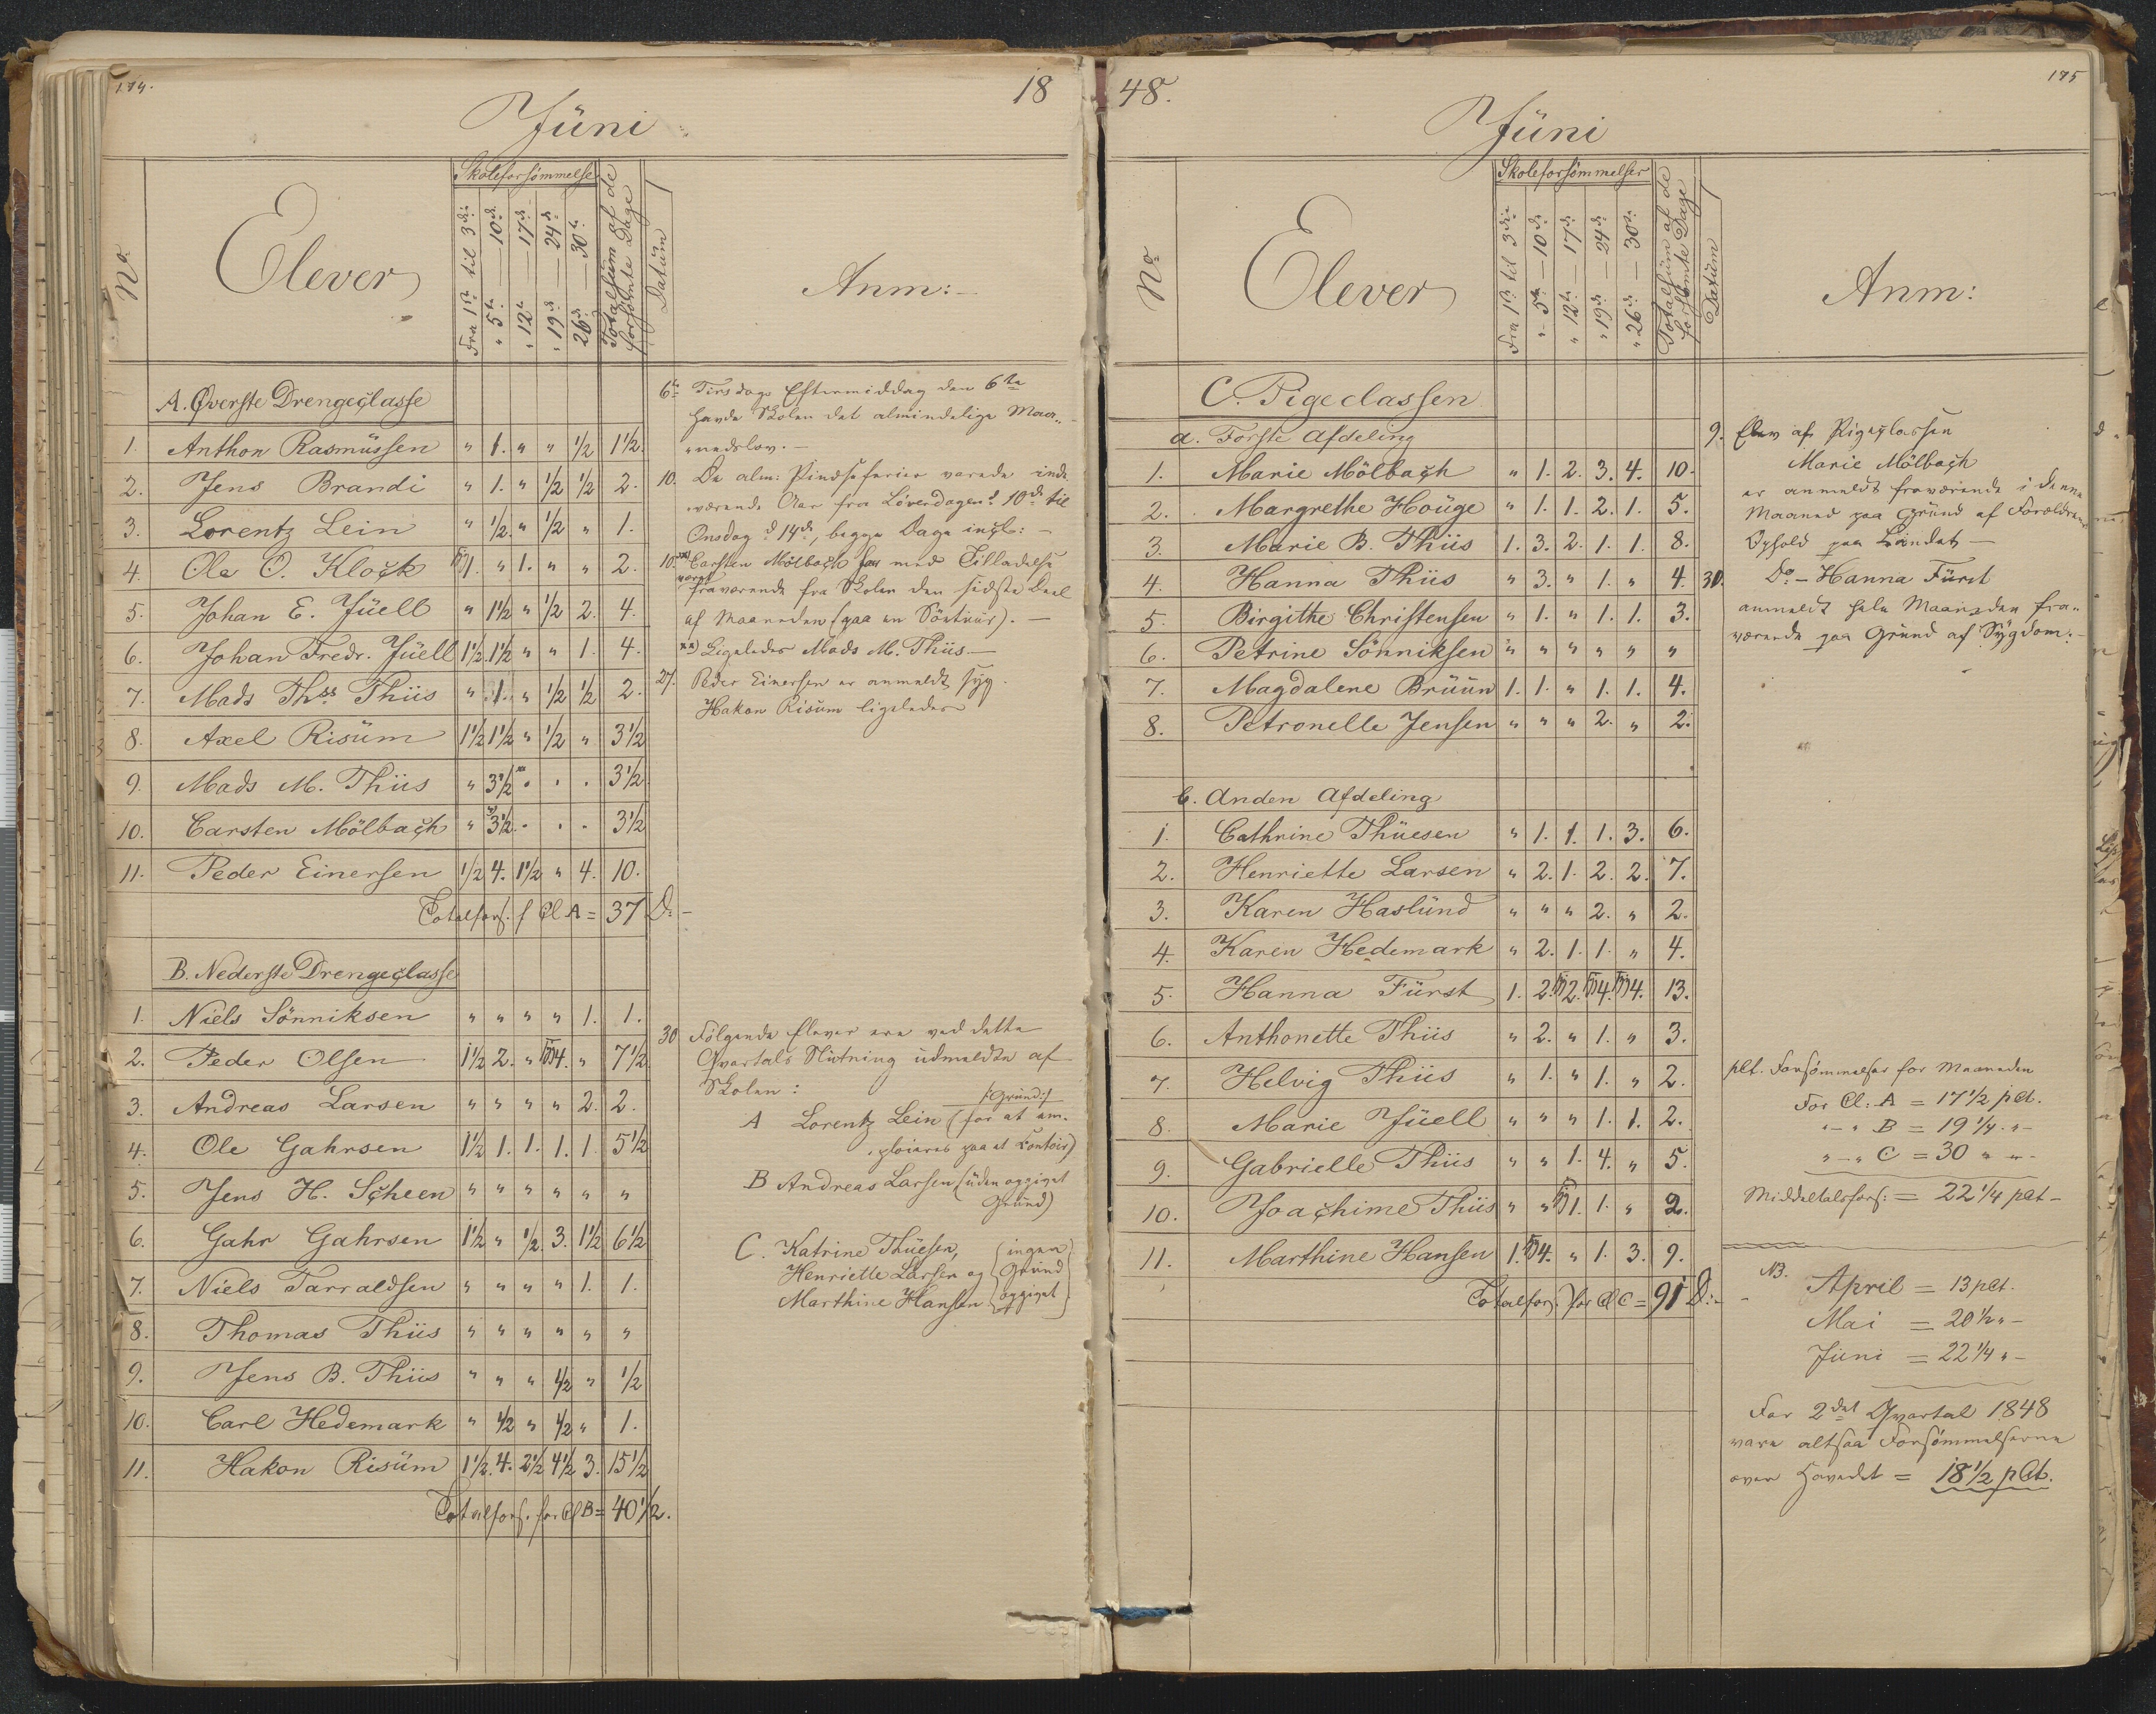 174.
18
Jüni
No
Elever
Skoleforsömmelse
Fra 1ste til 3die
" 5te — 10de
" 12te — 17de
" 19de — 24de
26de — 30te
Totalsum af de
forsömte Dage
Datüm
Anm:
A. Øverste Drengeclasse
1. Anthon Rasmüssen " 1. " " 1/2 1 1/2.
2. Jens Brandi " 1. " 1/2 1/2 2.
3. Lorentz Lein " 1/2. " 1/2 " 1.
4. Ole O. Klock 1. " 1. " " 2.
5. Johan E. Jüell " 1 1/2 " 1/2 2. 4.
6. Johan Fredr. Jüell 1 1/2. 1 1/2 " " 1. 4.
7. Mads Ths. Thiis " 1. " 1/2 1/2 2.
8. Axel Risüm 1 1/2 1 1/2 " 1/2 " 3 1/2
9. Mads M. Thiis " 3 1/2 xx) . . . 3 1/2
10. Carsten Mölbach " x) 3 1/2 . . . 3 1/2
11. Peder Einersen 1/2 4. 1 1/2 " 4. 10.
Totalfors. f Cl A = 37 D.
6te Tirsdags Eftermiddag den 6te
havde Skolen det almindelige Maa-
nedslov. —
10. De alm: Pindseferier varede inde-
værende Aar fra Löverdagen d. 10de til
Onsdag d 14de, begge Dage incl: —
10. x) Carsten Mölbach har med Tilladelse
været
fraværende fra Skolen den sidste Deel
af Maaneden (paa en Söetour). —
xx) Ligeledes Mads M. Thiis —
27. Peder Einersen er anmeldt syg.
Hakon Risüm ligeledes
B. Nederste Drengeclasse
1. Niels Sönniksen " " " " 1. 1.
2. Peder Olsen 1 1/2 2. " 4. " 7 1/2
3. Andreas Larsen " " " " 2. 2.
4. Ole Gahrsen 1 1/2 1. 1. 1. 1. 5 1/2
5. Jens H. Scheen " " " " " "
6. Gahr Gahrsen 1 1/2 " 1/2. 3. 1 1/2 6 1/2
7. Niels Tarraldsen " " " " 1. 1.
8. Thomas Thiis " " " " " "
9. Jens B. Thiis " " " 1/2 " 1/2
10. Carl Hedemark " 1/2 " 1/2 " 1.
11. Hakon Risüm 1 1/2. 4. 2 1/2 4 1/2 3. 15 1/2
Totalfors. for Cl B = 40 1/2.
30 Følgende Elever ere ved dette
Qvartals Slütning üdmeldte af
Skolen:
/:Grund:/
A Lorentz Lein (for at em-
ploieres paa et Contoir)
B Andreas Larsen (üden opgivet
Gründ)
C. Katrine Thüesen, (ingen
Henriette Larsen og Gründ
Marthine Hansen opgivet)
48.
175
Jüni
No
Elever
Skoleforsömmelser
Fra 1ste til 3die
" 5te — 10de
" 12te — 17de
" 19de — 24de
" 26de — 30te
Totalsüm af de
forsömte Dage
Datüm
Anm:
C. Pigeclassen
a. Første Afdeling
1. Marie Mölbach " 1. 2. 3. 4. 10.
2. Margrethe Hoüge " 1. 1. 2. 1. 5.
3. Marie B. Thiis 1. 3. 2. 1. 1. 8.
4. Hanna Thiis " 3. " 1. " 4.
5. Birgithe Christensen " 1. " 1. 1. 3.
6. Petrine Sönniksen " " " " " "
7. Magdalene Brüün 1. 1. " 1. 1. 4.
8. Petronelle Jensen " " " 2. " 2.
9. Elev af Pigeclassen
Marie Mölbach
er anmeldt fraværende i denne
Maaned paa Gründ af Forældrenes
Ophold paa Landet —
30. Do — Hanna Fürst
anmeldt hele Maaneden fra-
værende paa Gründ af Sÿgdom. —
b. Anden Afdeling
1. Cathrine Thüesen " 1. 1. 1. 3. 6.
2. Henriette Larsen " 2. 1. 2. 2. 7.
3. Karen Haslünd " " " 2. " 2.
4. Karen Hedemark " 2. 1. 1. " 4.
5. Hanna Fürst 1. 2. 2. 4. 4. 13.
6. Anthonette Thiis " 2. " 1. " 3.
7. Helvig Thiis " 1. " 1. " 2.
8. Marie Jüell " " " 1. 1. 2.
9. Gabrielle Thiis " " 1. 4. " 5.
10. Joachime Thiis " " 1. 1. " 2.
11. Marthine Hansen 1. 4. " 1. 3. 9.
Totalfors. for Cl C = 91 D.
pCt. Forsömmelser for Maaneden
For Cl: A = 17 1/2 pCt.
" — " B = 19 1/4 " —
" — " C = 30 " " —
Middeltalsfors: = 22 1/4 pCt —
NB.
April = 13 pCt.
Mai = 20 1/2 " —
Jüni = 22 1/4 " —
For 2det Qvartal 1848
vare altsaa Forsömmelserne
over Hovedet = 18 1/2 pCt.